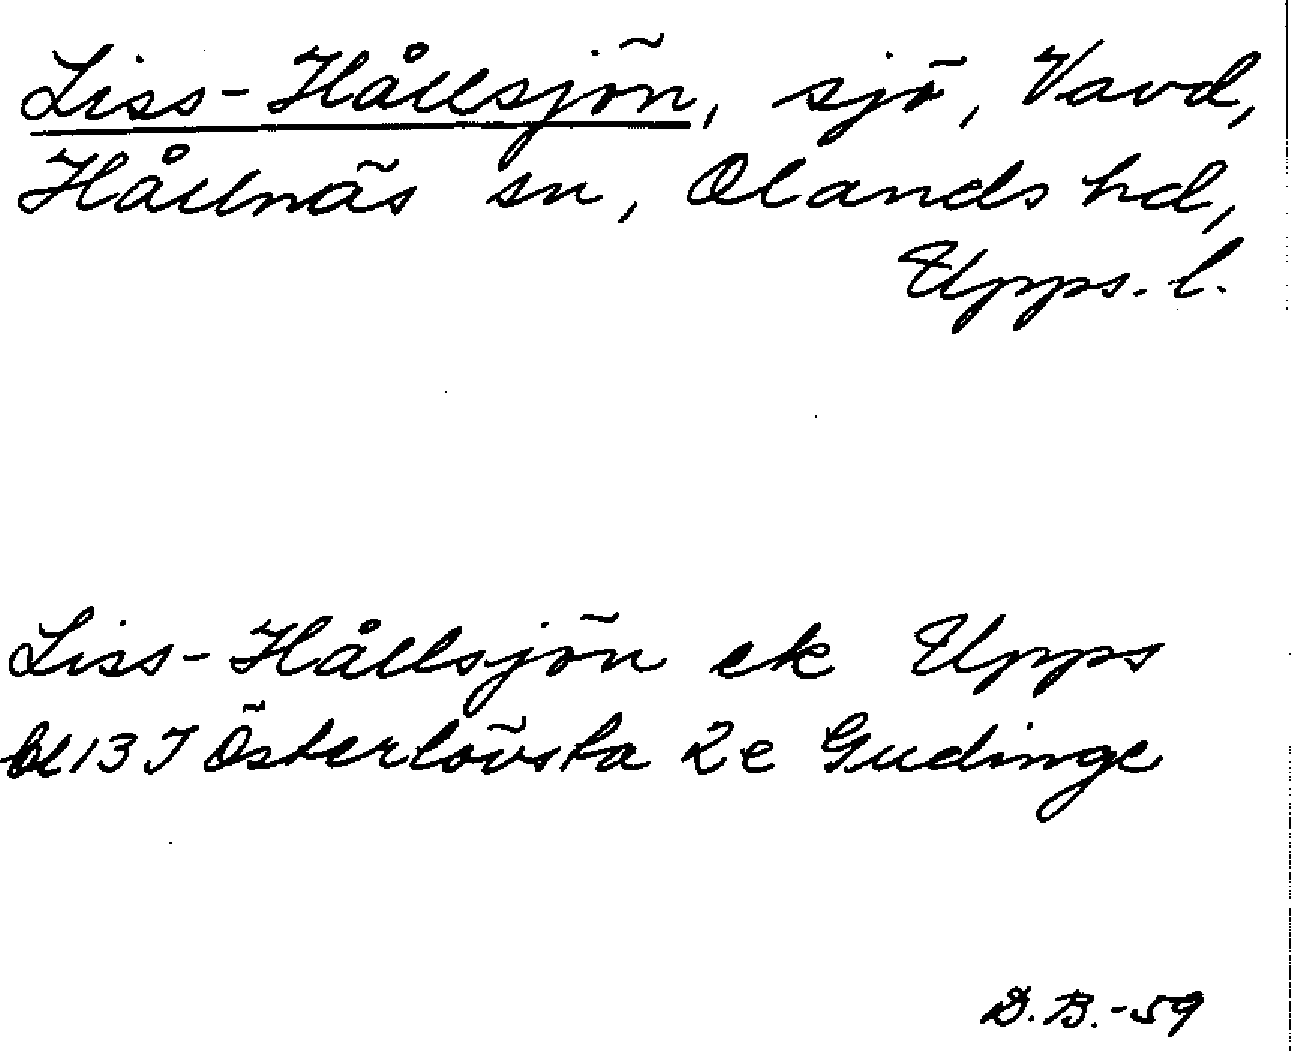 Liss-Hållsjön, sjö, Vavd,
Hållnäs sn, Olands hd,
Upps. l.
Liss-Hållsjön ek Upps
bl 13 I Österlövsta 2e Gudinge
D.B.-59